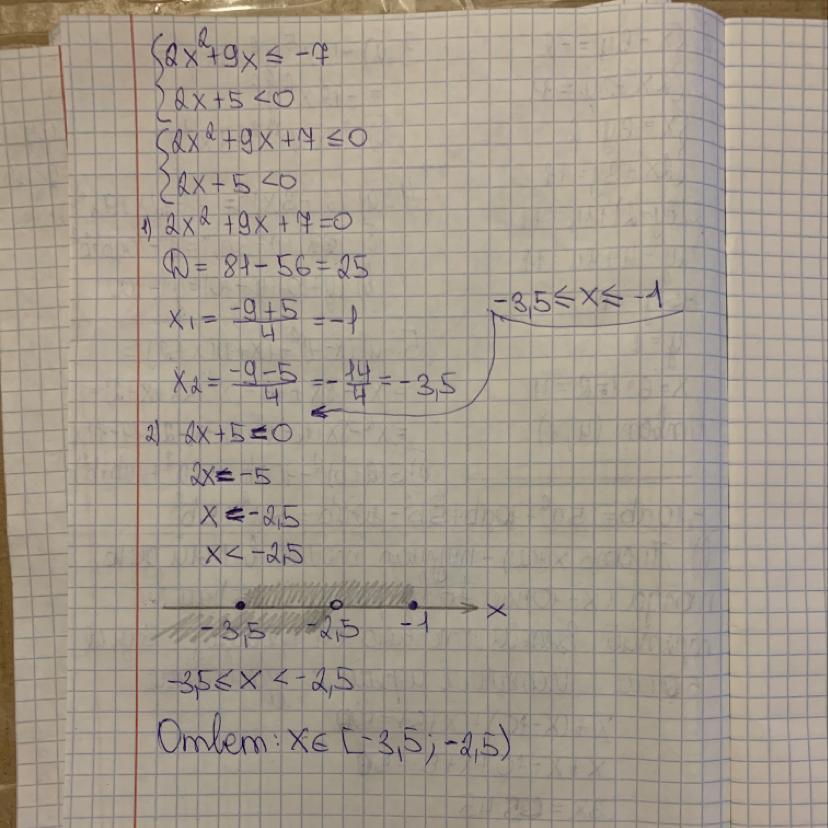 {2x²+9x ≤ -7
{2x+5 <0
{2x²+9x+7 ≤0
{2x+5 <0
1) 2x²+9x+7=0
D= 81-56=25
x₁= (-9+5)/4 =-1
-3,5≤x≤-1
x₂= (-9-5)/4 =-14/4=-3,5
2) 2x+5<0
2x<-5
x<-2,5
x<-2,5
-3,5 -2,5 -1 x
-3,5≤x<-2,5
Ответ: x∈[-3,5;-2,5)